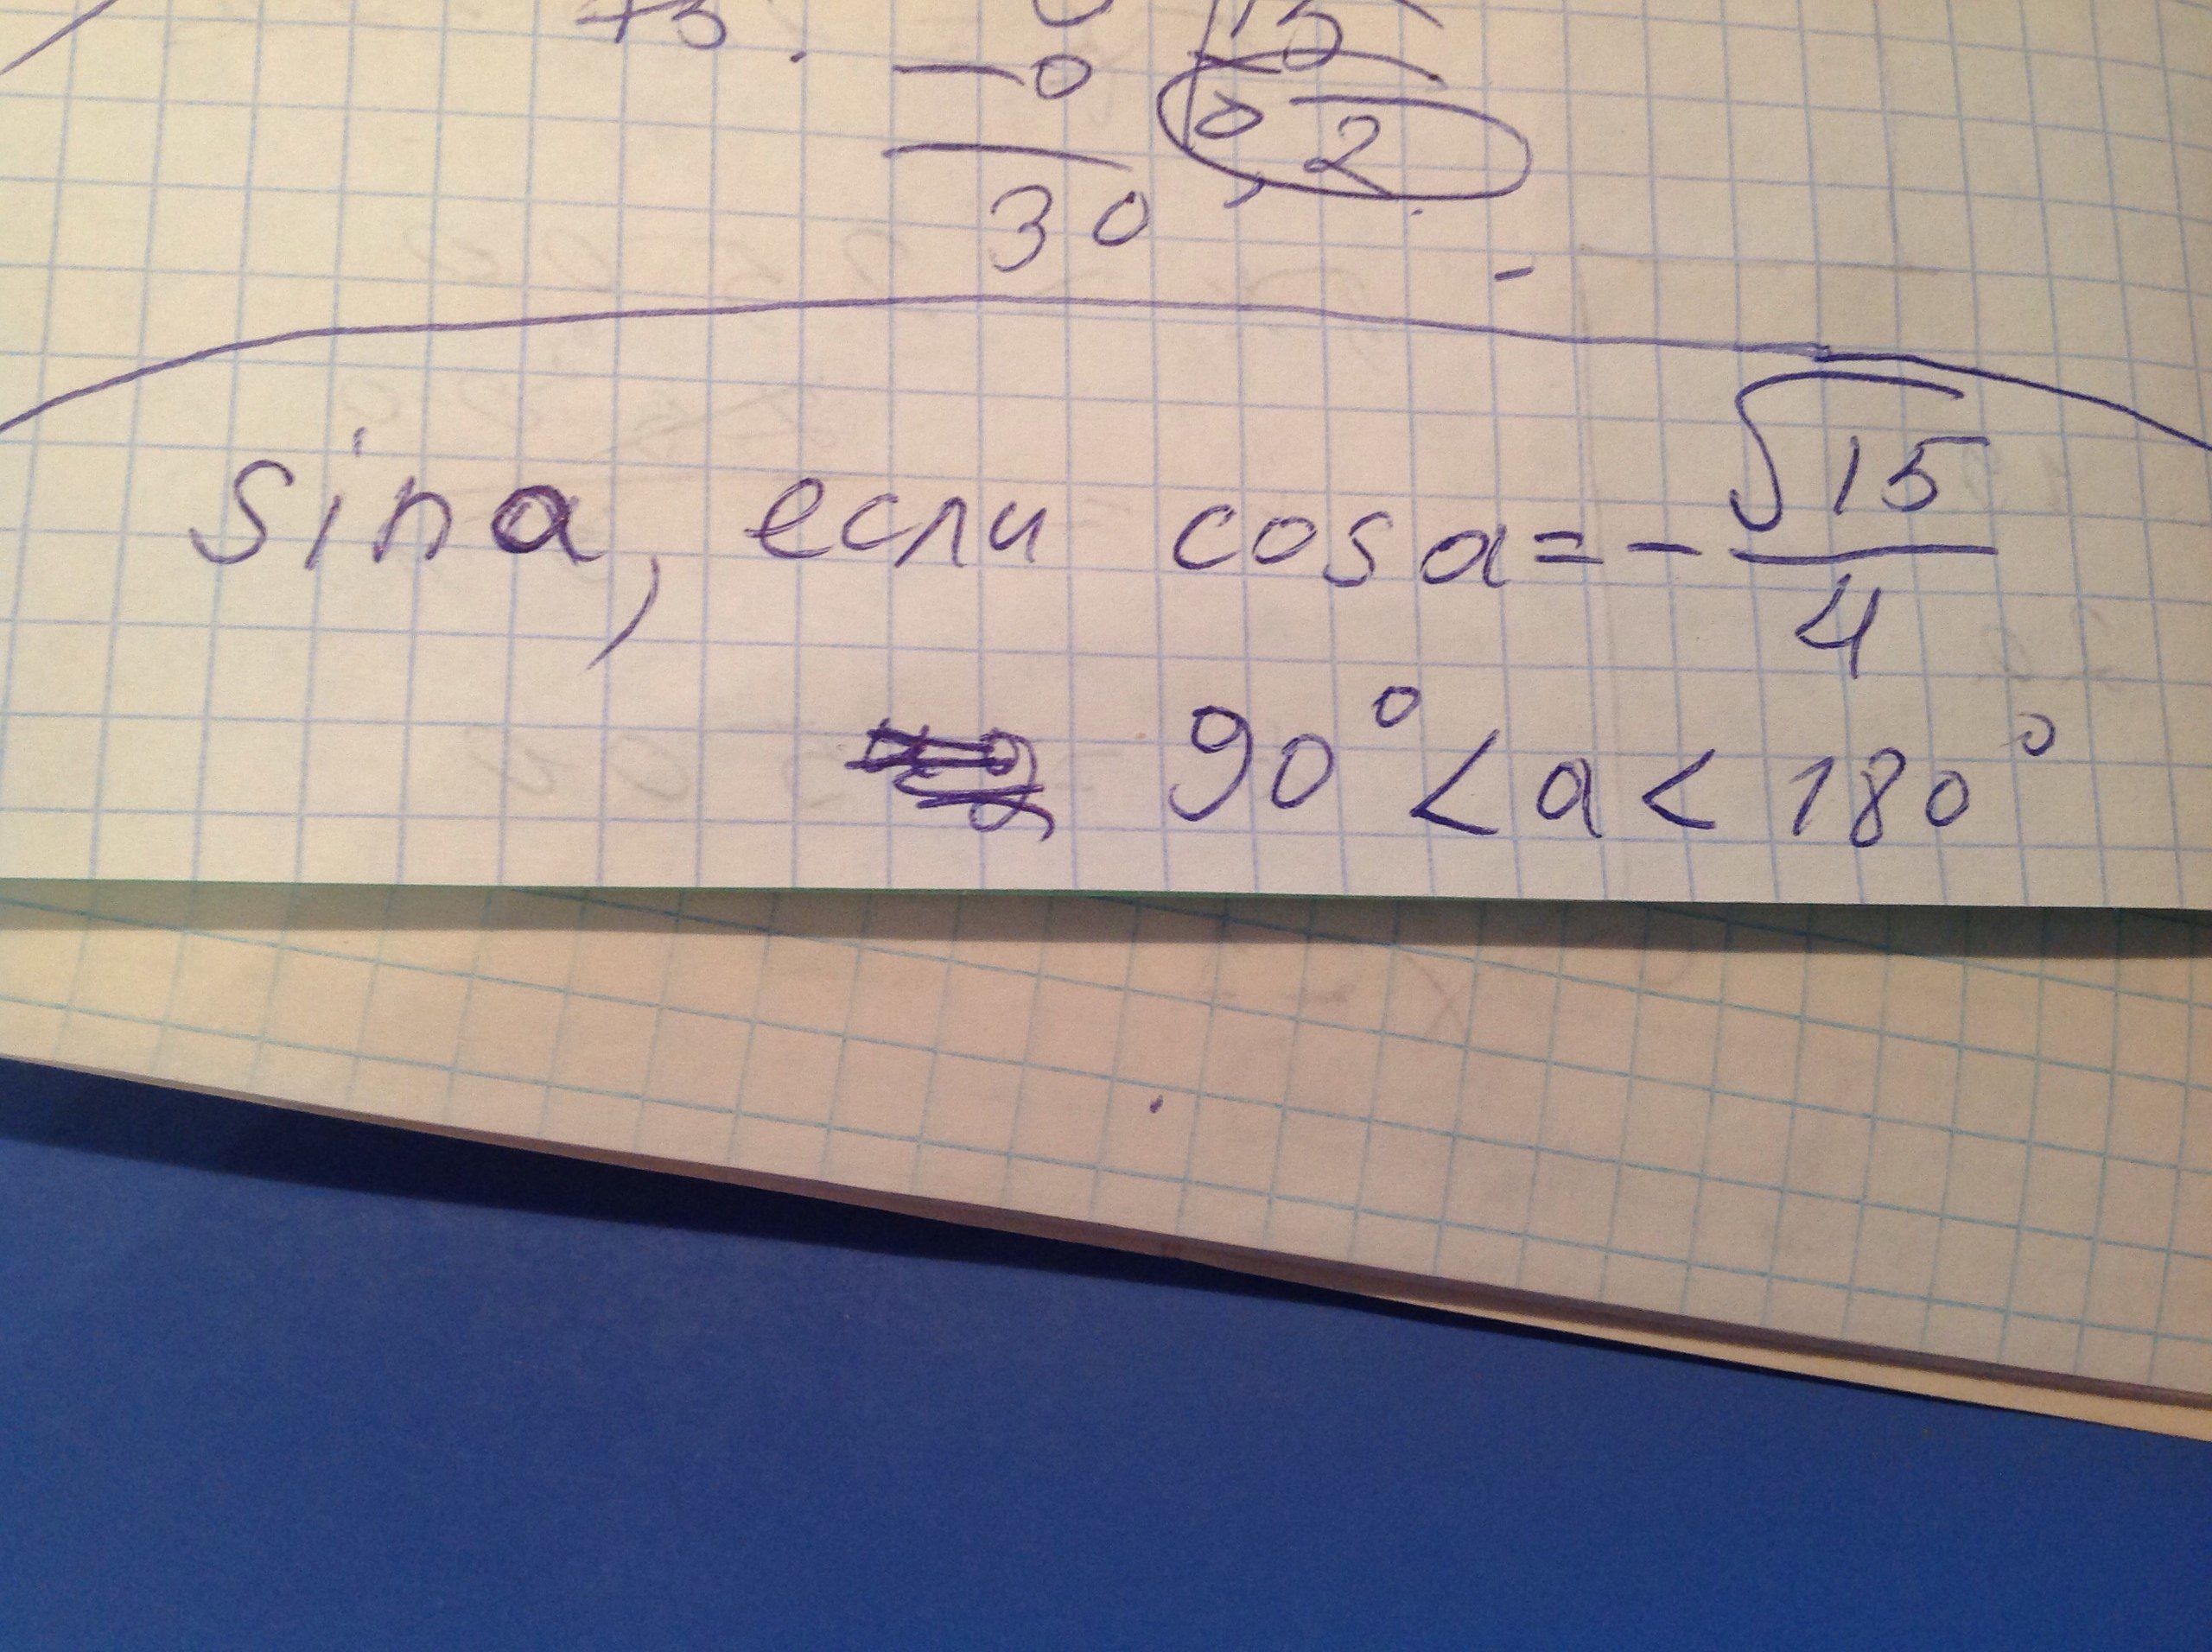 75.
15
0
0,2
30
sin a, если cos a = - √15/4
90° < a < 180°